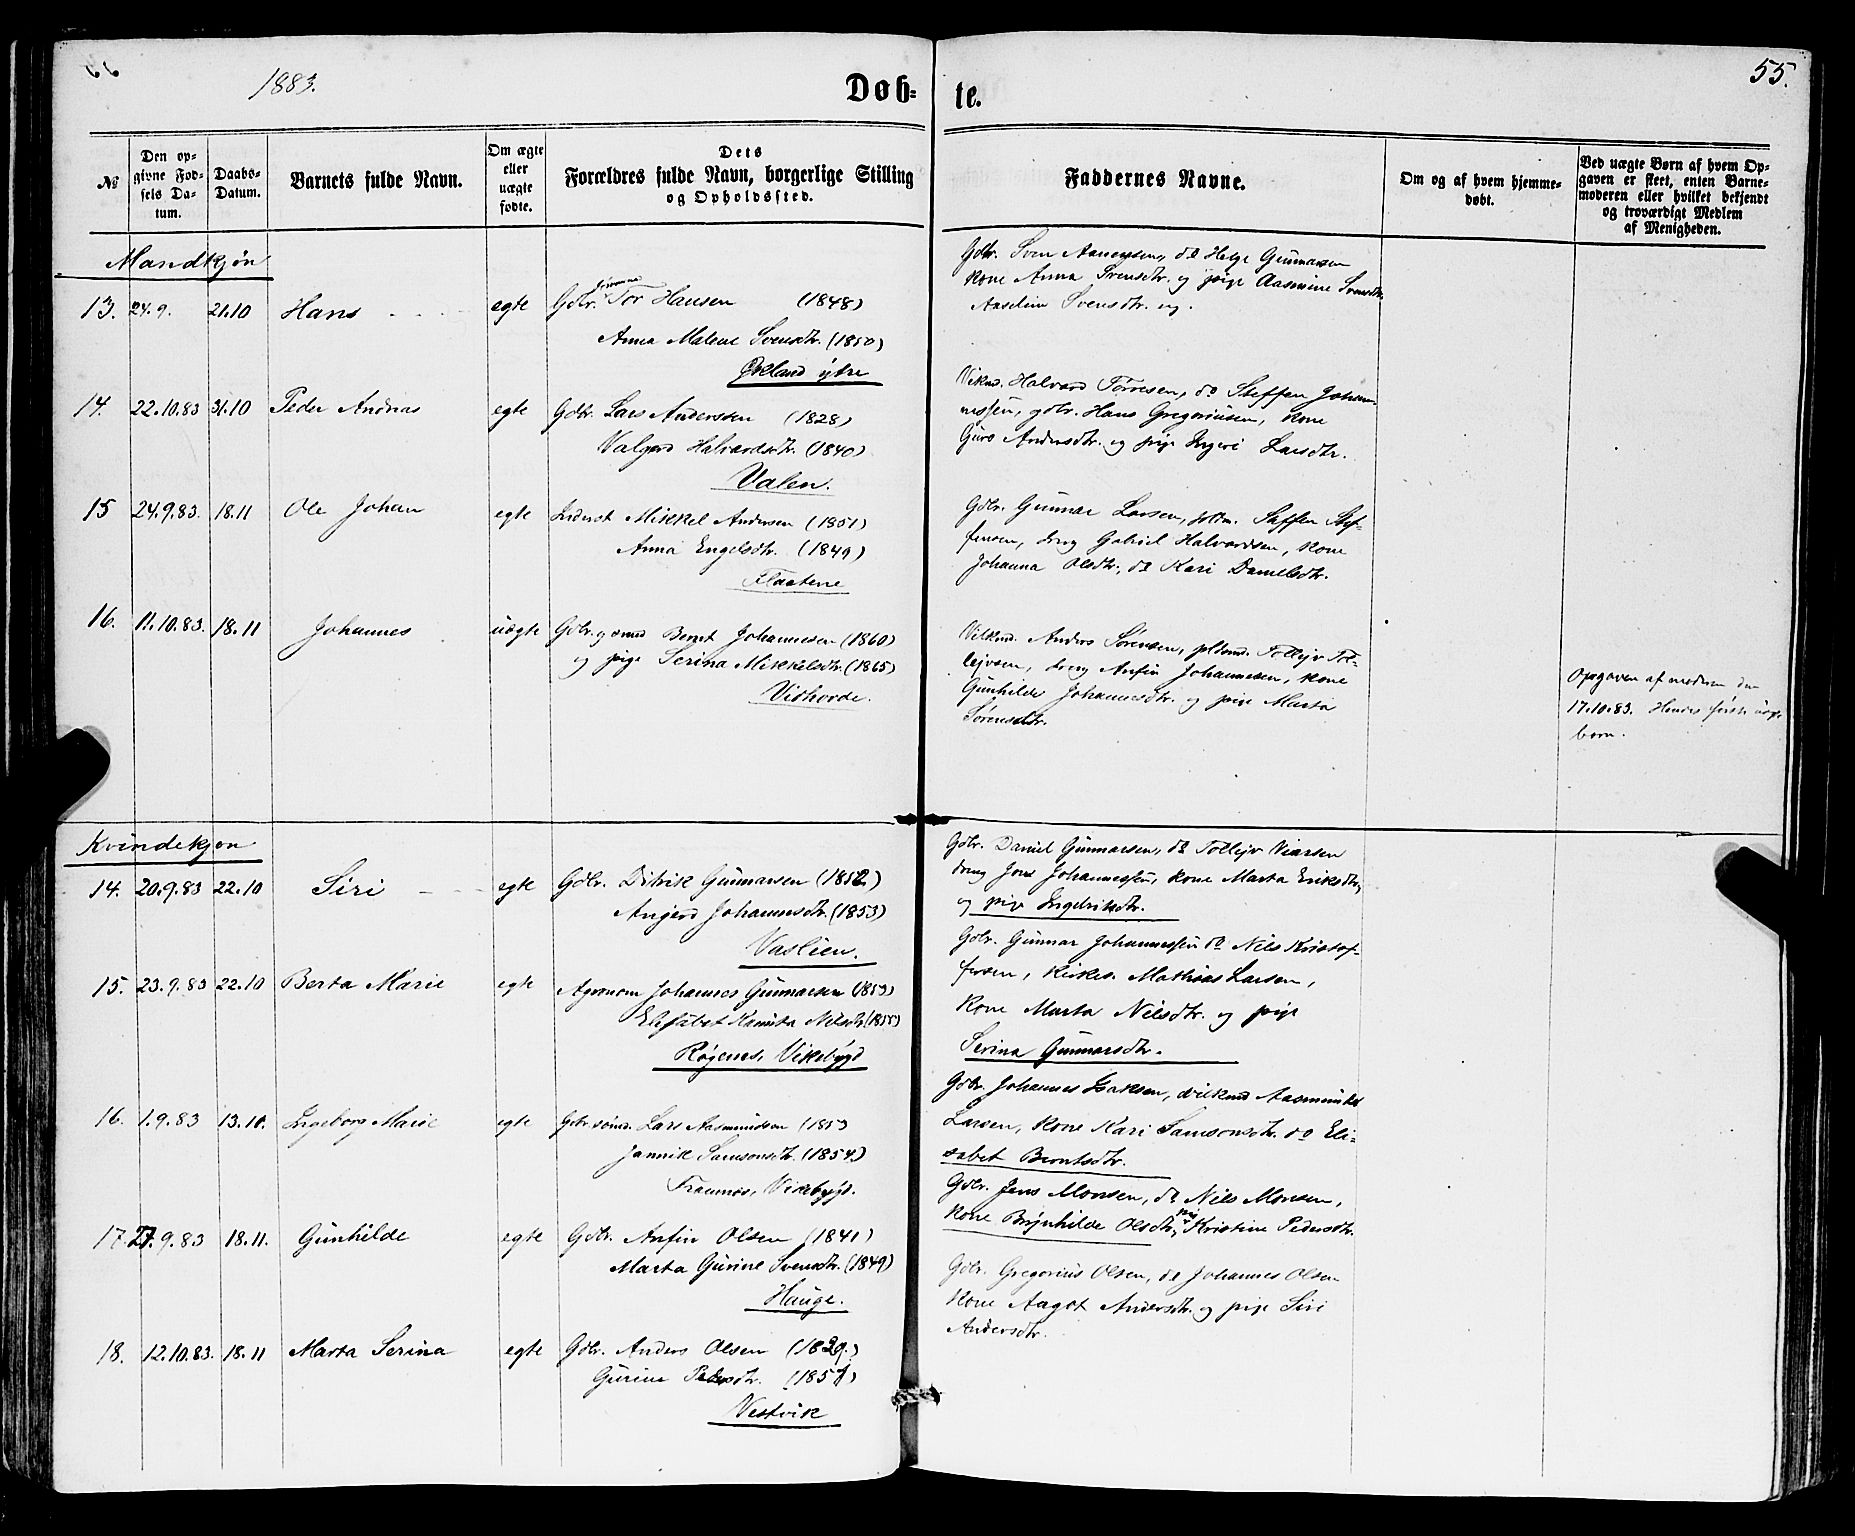 1883.
Døb-
te.
55.
№
Den op-
givne Fød-
sels Da-
tum.
Daabs-
Datum.
Barnets fulde Navn.
Om ægte
eller
uægte
fødte.
Dets
Forældres fulde Navn, borgerlige Stilling
og Opholdssted.
Faddernes Navne.
Om og af hvem hjemme-
døbt.
Ved uægte Børn af hvem Op-
gaven er skeet, enten Barne-
moderen eller hvilket bekjendt
og troværdigt Medlem
af Menigheden.
Mandkjøn
13. 24.9. 21.10 Hans egte Gdbr. Tor Hansen (1848)
Anna Malene Svensdtr. (1850)
Økland ytre
Gdbr. Sven Aanensen, do Helge Gunnarsen
kone Anna Svensdtr. og pige Aasmine Svensdtr.
Aaseline Svensdtr. ug.
14. 22.10.83 31.10 Peder Andreas egte Gdbr. Lars Andersen (1828)
Valgerd Halvardsdtr. (1840)
Valen.
Vikmd. Halvard Tørresen, do Steffen Johan-
nessen, gdbr. Hans Gregoriusen, kone
Guro Andersdtr. og pige Ingeri Larsdtr.
15 24.9.83. 18.11 Ole Johan egte Inderst Mikkel Andersen (1851)
Anna Engelsdtr. (1849)
Flaatene
Gdbr. Gunnar Larsen, pldm. Staffen Stef-
fensen, dreng Gabriel Halvardsen, kone
Johanna Olsdtr., do Kari Danielsdtr.
16. 11.10.83. 18.11 Johannes uægte Gdbr. og smed Bernt Johannesen (1860)
og pige Serina Mikkelsdtr. (1865)
Vishorde.
Vilkmd. Anders Sørensen, pldsmd. Tollejv Tol-
lejvsen, dreng Anfin Johannesen, kone
Gunhilde Johannesdtr. og pige Marta
Sørensdtr.
Opgaven af moderen den
17.10.83. Hendes første uægte
barn.
Kvindekjøn
14. 20.9.83 22.10 Siri egte Gdbr. Ditrik Gunnarsen (1852)
Angerd Johannesdtr. (1853)
Vaslien.
Gdbr. Daniel Gunnarsen, do Tollejv Viarsen
dreng Jens Johannessen, kone Marta Eriksdtr.
og pige Ingebriktsdtr.
15. 23.9.83 22.10 Berta Marie egte Agronom Johannes Gunnarsen (1853)
Elisabet Kamita Nilsdtr. (1855)
Røgenes, Vikebygd
Gdbr. Gunnar Johannessen do Nils Kristof-
fersen, kirkes. Mathias Larsen,
kone Marta Nilsdtr. og pige
Serina Gunnarsdtr.
16. 1.9.83 13.10. Ingeborg Marie egte Gdbr.sønn. Lars Aasmundsen (1853
Jannik Samsonsdtr. (1854)
Framnes, Vikebygd.
Gdbr. Johannes Isaksen, vilkmd Aasmund
Larsen, kone Kari Samsonsdtr. do Eli-
sabet Berntsdtr.
17. 27.9.83 18.11. Gunhilde egte Gdbr. Anfin Olsen (1841)
Marta Gurine Svensdtr. (1849)
Hauge.
Gdbr. Jens Monsen, do Nils Monsen,
kone Brynhilde Olsdtr., pig Kristine Pedersdtr.
18. 12.10.83. 18.11 Marta Serina egte Gdbr. Anders Olsen (1829.)
Gurine Pedersdtr. (1851)
Vestvik
Gdbr. Gregorius Olsen, do Johannes Olsen
kone Aagot Andersdtr. og pige Siri
Andersdtr.